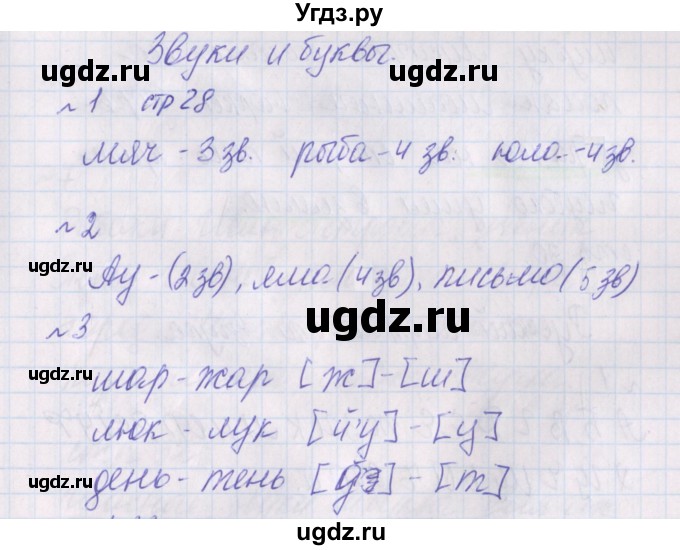 Угдз.ру
Звуки и буквы.
ugdz.ru ugdz.ru
№1 стр 28
мяч - 3 зв. рыба - 4 зв. юла - 4 зв.
№2
ugdz.ru ugdz.ru
Ау - (2 зв), яма (4 зв), письмо (5 зв)
№3
ugdz.ru ugdz.ru
шар - жар [ж] - [ш]
люк - лук [й'у] - [у]
ugdz.ru ugdz.ru
день - тень [д] - [т]
ugdz.ru ugdz.ru